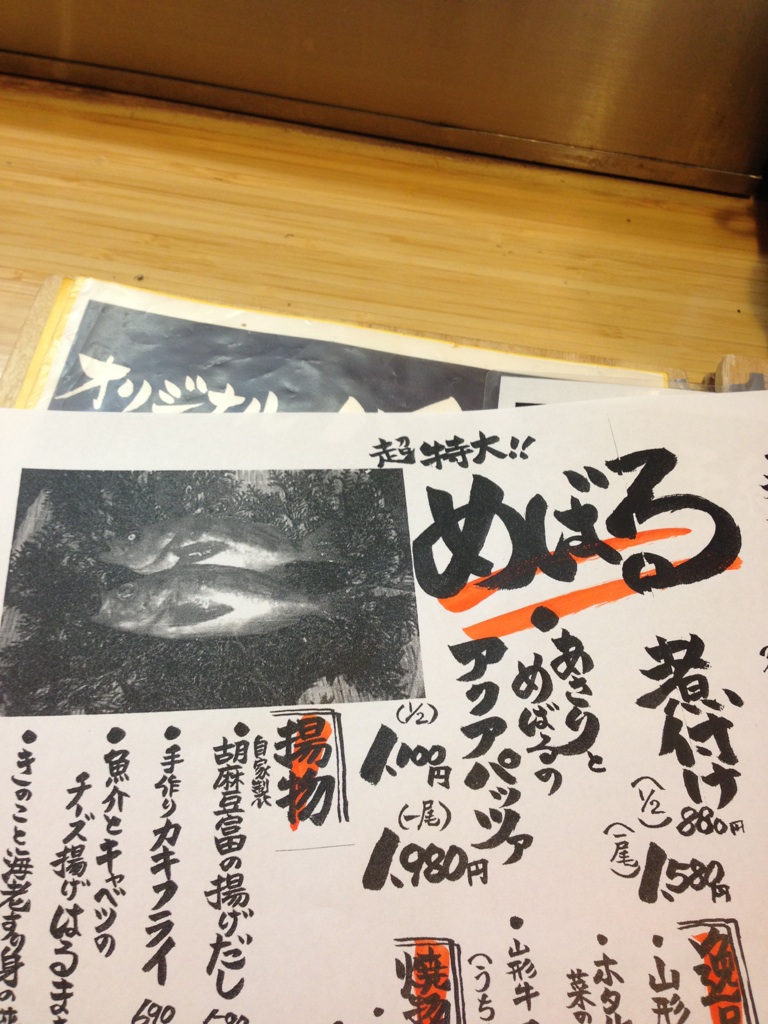 オリジナル
超特大!!
めばる
煮付け
(1/2)
880円
(一尾)
1,580円
・あさりと
めばるの
アクアパッツァ
(1/2)
1,100円
(一尾)
1,980円
揚物
・自家製
胡麻豆富の揚げだし
・手作りカキフライ
690
・魚介とキャベツの
チーズ揚げはるま
・きのこと海老すり身の
逸品
・山形
・ホタル
菜の
・山形牛
(うち
焼物